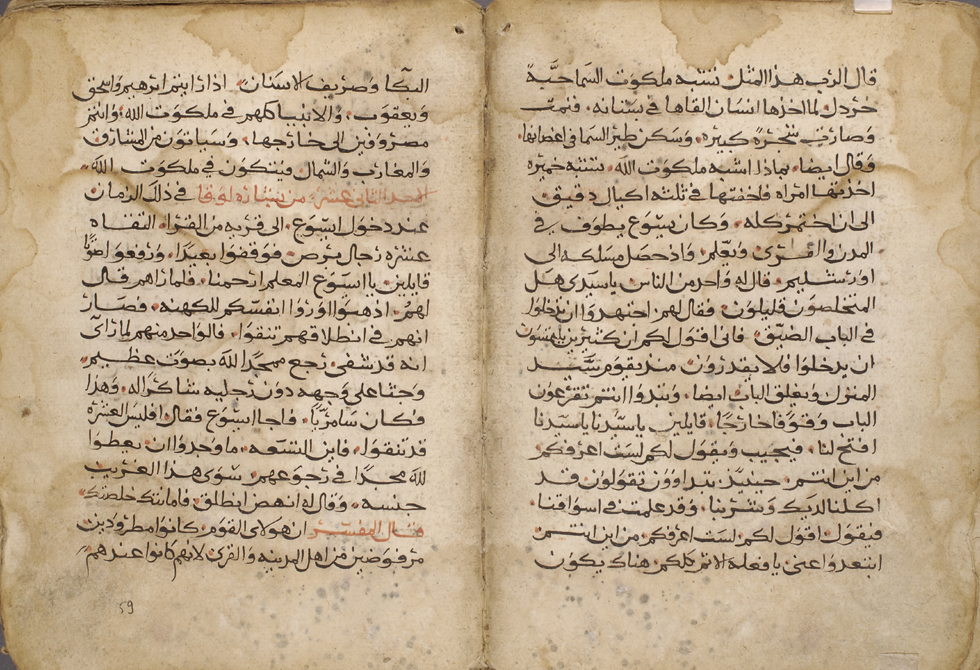 قال الرب هذا المثل تشبه ملكوت السما حبة
خردل لما اخذها انسان القاها في بستانه فنمت
وصارت شجرة كبيره وسكن طير السما في اغصانها
وقال ايضا بماذا اشبه ملكوت الله تشبه خميره
اخذتها امراه فاخفتها في ثلثه اكيال دقيق
الى ان اختمر كله وكان يسوع يطوف في
المدن والقرى ويعلم واذ حصل مسلكه الى
اورشليم قال له واحد من الناس يا سيدي هل
المتخلصون قليلون فقال لهم اجتهدوا ان تدخلوا
في الباب الضيق فاني اقول لكم ان كثيرين يلتمسون
ان يدخلوا فلا يقدرون منذ يقوم سيد
المنزل ويغلق الباب ايضا وتبدوا انتم تقرعون
الباب وقوفا خارجا قايلين يا سيدنا يا سيدنا
افتح لنا فيجيب ويقول لكم لست اعرفكم
من اين انتم حينيذ تبتداوون تقولون قد
اكلنا لديك وشربنا وقد علمت في اسواقنا
فيقول اقول لكم لست اعرفكم من اين انتم
ابتعدوا عني يا فعلة الاثم كلكم هناك يكون
البكا وصريف الاسنان اذا رايتم ابرهيم واسحق
ويعقوب والانبيا كلهم في ملكوت الله وانتم
مصروفين الى خارجها وسياتون من المشارق
والمغارب والشمال ويتكون في ملكوت الله
الاحد الثاني عشر من بشارة لوقا في ذلك الزمان
عند دخول ايسوع الى قريه من القرا التقاه
عشرة رجال برص فوقفوا بعيدا ورفعوا اصواتا
قايلين يا ايسوع المعلم ارحمنا فلما راهم قال
لهم اذهبوا اوروا انفسكم للكهنه فصار
انهم في انطلاقهم تنقوا فالواحد منهم لما راى
انه قد شفي رجع ممجدا الله بصوت عظيم
وجثا على وجهه دون رجليه شاكرا له وهذا
فكان سامريا فاجا ايسوع فقال افليس العشره
قد تنقوا فاين التسعه ما وجدوا ان يعطوا
لله مجدا في رجوعهم سوى هذا الغريب
جنسه وقال له انهض انطلق فامانتك خلصتك
قال المفسر ان هولاي القوم كانوا مطرودين
مرفوضين من اهل المدينه والقرى لانهم كانوا عندهم
59